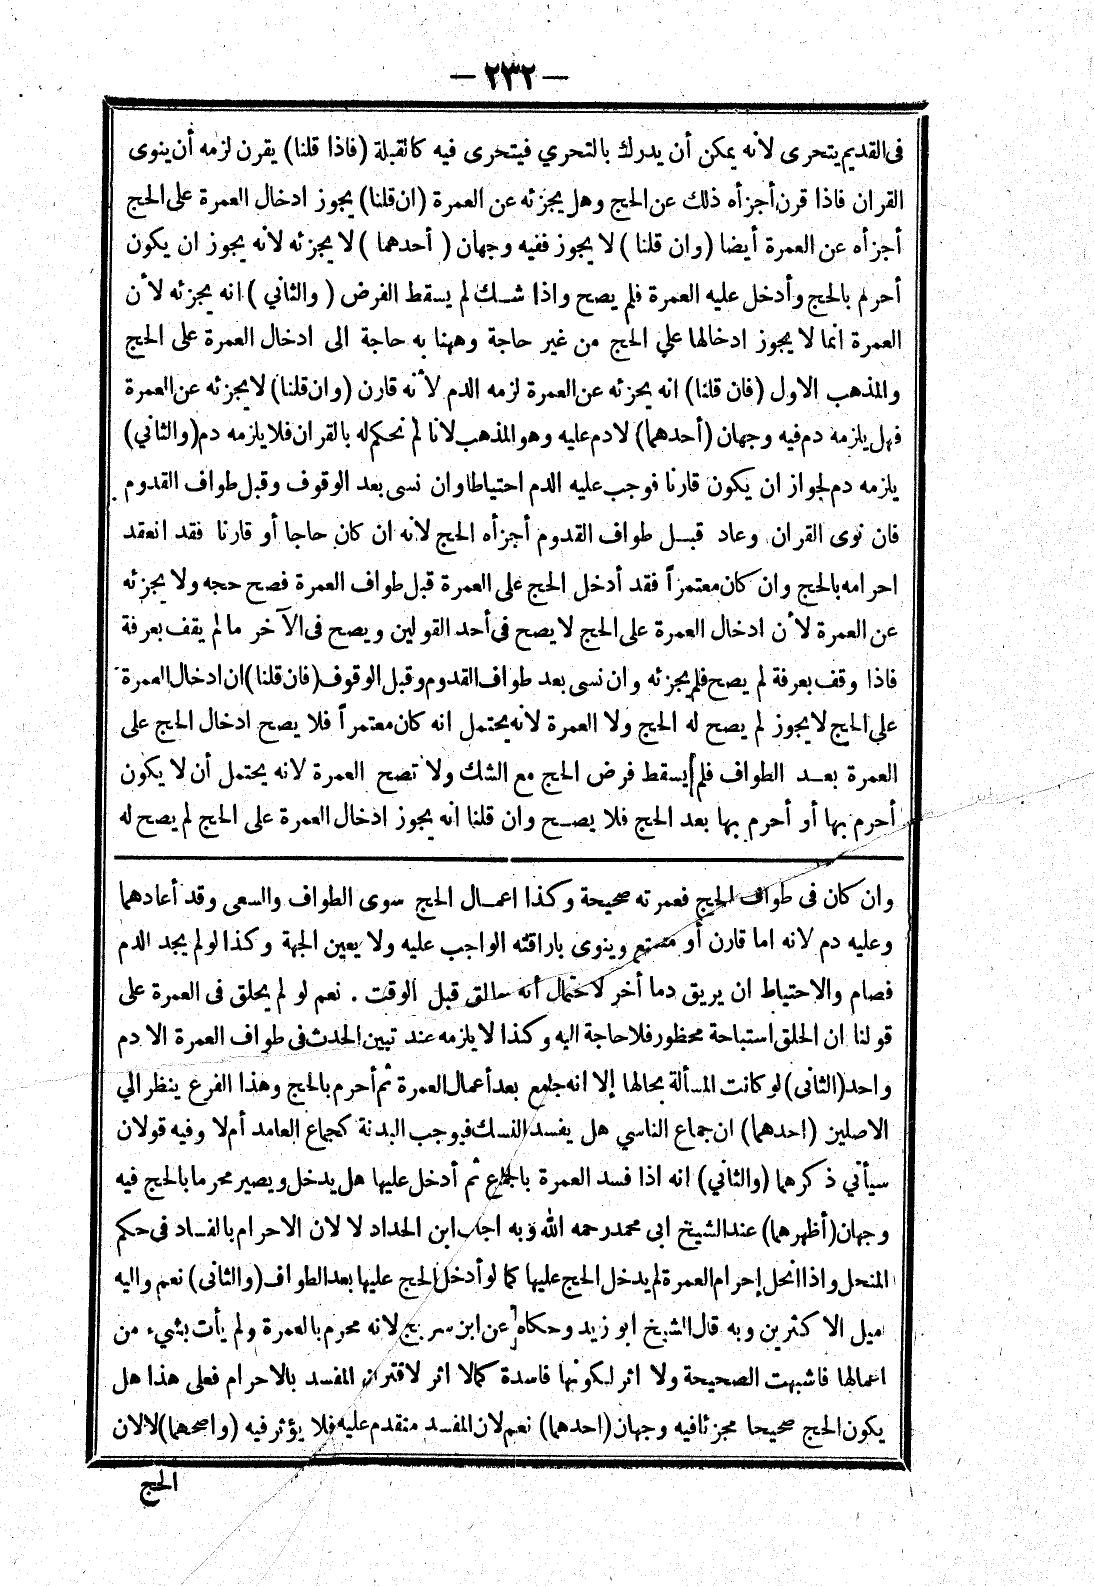 — ٢٣٢ —
فى القديم يتحرى لانه يمكن أن يدرك بالتحري فيتحرى فيه كالقبلة (فاذا قلنا) يقرن لزمه أن ينوى
القران فاذا قرن أجزأه ذلك عن الحج وهل يجزئه عن العمرة (ان قلنا) يجوز ادخال العمرة على الحج
أجزأه عن العمرة أيضا (وان قلنا) لا يجوز ففيه وجهان (أحدهما) لا يجزئه لانه يجوز ان يكون
أحرم بالحج وأدخل عليه العمرة فلم يصح واذا شك لم يسقط الفرض (والثاني) انه يجزئه لأن
العمرة انما لا يجوز ادخالها علي الحج من غير حاجة وههنا به حاجة الى ادخال العمرة على الحج
والمذهب الاول (فان قلنا) انه يجزئه عن العمرة لزمه الدم لأنه قارن (وان قلنا) لا يجزئه عن العمرة
فهل يلزمه دم فيه وجهان (أحدهما) لا دم عليه وهو المذهب لانا لم نحكم له بالقران فلا يلزمه دم (والثاني)
يلزمه دم لجواز ان يكون قارنا فوجب عليه الدم احتياطا وان نسى بعد الوقوف وقبل طواف القدوم
فان نوى القران وعاد قبل طواف القدوم أجزأه الحج لانه ان كان حاجا أو قارنا فقد انعقد
احرامه بالحج وان كان معتمراً فقد أدخل الحج على العمرة قبل طواف العمرة فصح حجه ولا يجزئه
عن العمرة لأن ادخال العمرة على الحج لا يصح فى أحد القولين ويصح فى الآخر ما لم يقف بعرفة
فاذا وقف بعرفة لم يصح فلم يجزئه وان نسى بعد طواف القدوم وقبل الوقوف (فان قلنا) ان ادخال العمرة
على الحج لا يجوز لم يصح له الحج ولا العمرة لانه يحتمل انه كان معتمراً فلا يصح ادخال الحج على
العمرة بعد الطواف فلم يسقط فرض الحج مع الشك ولا تصح العمرة لانه يحتمل أن لا يكون
أحرم بها أو أحرم بها بعد الحج فلا يصح وان قلنا انه يجوز ادخال العمرة على الحج لم يصح له
وان كان فى طواف الحج فعمرته صحيحة وكذا اعمال الحج سوى الطواف والسعى وقد أعادهما
وعليه دم لانه اما قارن أو متمتع وينوى باراقته الواجب عليه ولا يعين الجهة وكذا لو لم يجد الدم
فصام والاحتياط ان يريق دما أخر لاحتمال أنه حالق قبل الوقت . نعم لو لم يحلق فى العمرة على
قولنا ان الحلق استباحة محظور فلا حاجة اليه وكذا لا يلزمه عند تبين الحدث فى طواف العمرة الا دم
واحد (الثانى) لو كانت المسألة بحالها إلا انه جامع بعد أعمال العمرة ثم أحرم بالحج وهذا الفرع ينظر الي
الاصلين (احدهما) ان جماع الناسي هل يفسد النسك فيوجب البدنة كجماع العامد أم لا وفيه قولان
سيأتي ذكرهما (والثاني) انه اذا فسد العمرة بالجماع ثم أدخل عليها هل يدخل ويصير محرما بالحج فيه
وجهان (أظهرهما) عند الشيخ ابى محمد رحمه الله وبه اجاب ابن الحداد لا لان الاحرام بالفساد فى حكم
المنحل واذا انحل إحرام العمرة لم يدخل الحج عليها كما لو أدخل الحج عليها بعد الطواف (والثانى) نعم واليه
ميل الاكثرين وبه قال الشيخ ابو زيد وحكاه عن ابن سريج لانه محرم بالعمرة ولم يأت بشيء من
اعمالها فاشبهت الصحيحة ولا اثر لكونها فاسدة كما لا اثر لاقتران المفسد بالاحرام فعلى هذا هل
يكون الحج صحيحا مجزئا فيه وجهان (احدهما) نعم لان المفسد متقدم عليه فلا يؤثر فيه (واصحهما) لا لان
الحج